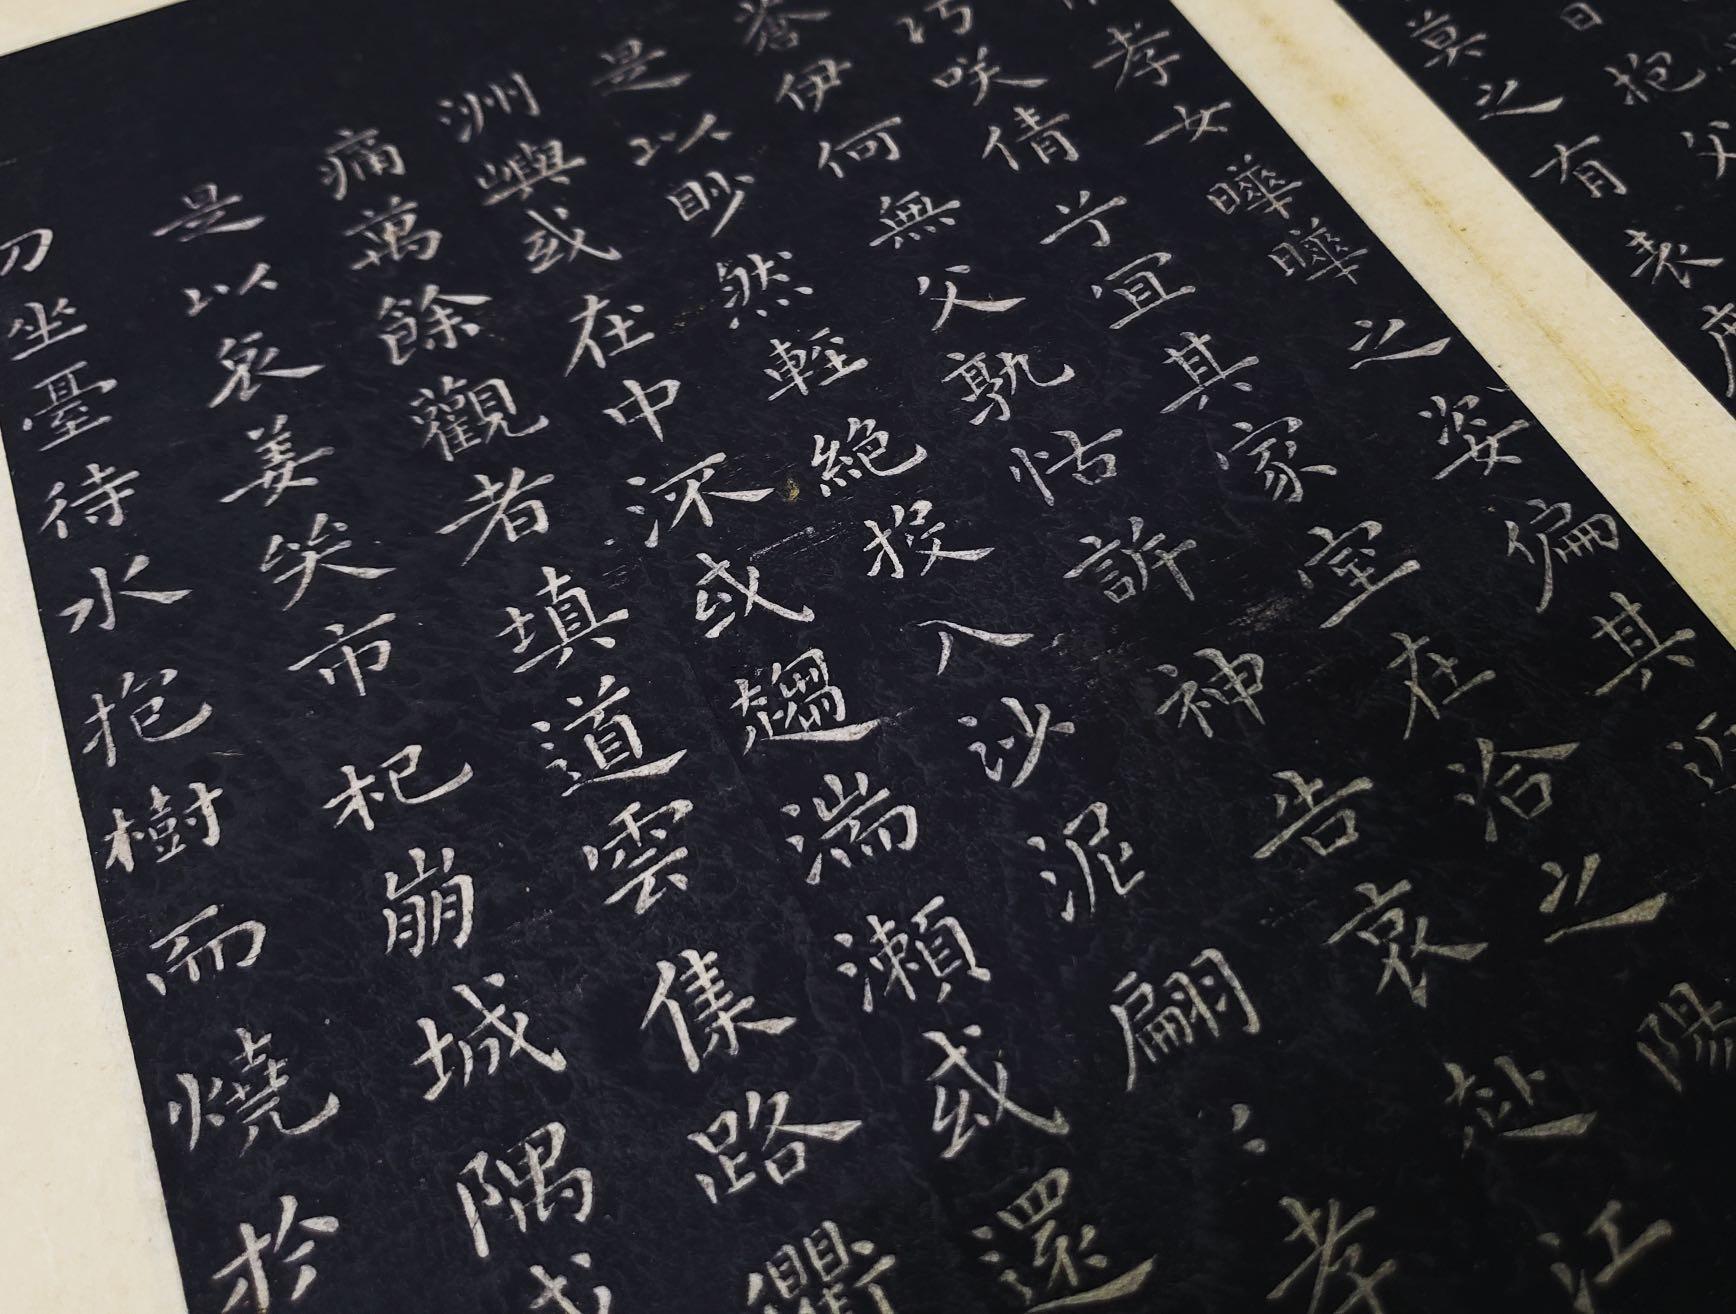 日抱父
莫之有表度
孝女曄曄之姿偏其返
巧咲倩兮宜其家室在洽之陽
蒼伊何無父孰怙訴神告哀赴江
是以眇然輕絕投入沙泥翩〻孝
洲嶼或在中流或趨湍瀨或還
痛萬餘觀者填道雲集路衢
是以哀姜哭市杞崩城隅或
刀坐臺待水抱樹而燒於